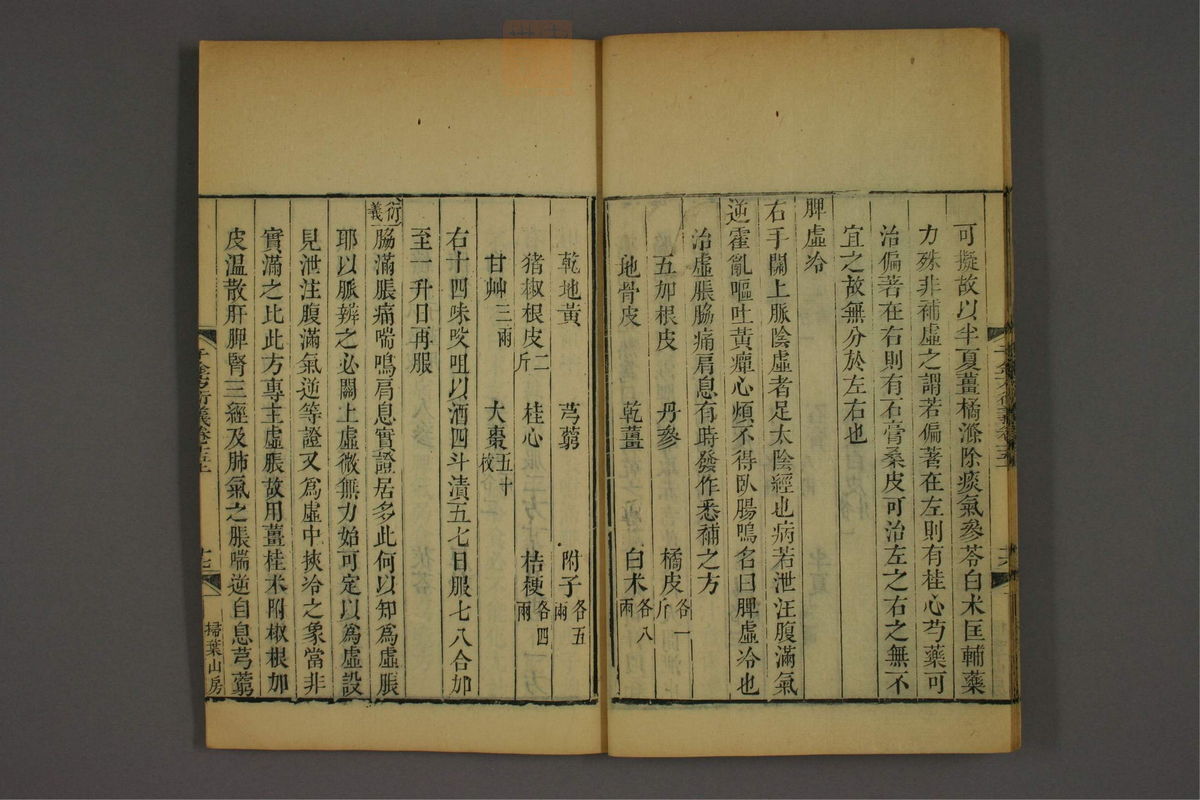 可擬故以半夏薑橘滌除痰氣參苓白朮匡輔藥
力殊非補虛之謂若偏著在左則有桂心芍藥可
治偏著在右則有石膏桑皮可治左之右之無不
宜之故無分於左右也
脾虛冷
右手關上脈陰虛者足太陰經也病若泄注腹滿氣
逆霍亂嘔吐黃癉心煩不得臥腸鳴名曰脾虛冷也
治虛脹脇痛肩息有時發作悉補之方
五加根皮 丹參 橘皮各一斤
地骨皮 乾薑 白朮各八兩
乾地黃 芎藭 附子各五兩
猪椒根皮二斤 桂心 桔梗各四兩
甘艸三兩 大棗五十枚
右十四味㕮咀以酒四斗漬五七日服七八合加
至一升日再服
衍義
脇滿脹痛喘鳴肩息實證居多此何以知爲虛脹
耶以脈辨之必關上虛微無力始可定以爲虛設
見泄注腹滿氣逆等證又爲虛中挾冷之象當非
實滿之比此方專主虛脹故用薑桂朮附椒根加
皮溫散肝脾腎三經及肺氣之脹喘逆自息芎藭
千金方衍義卷十五上
十七
掃葉山房